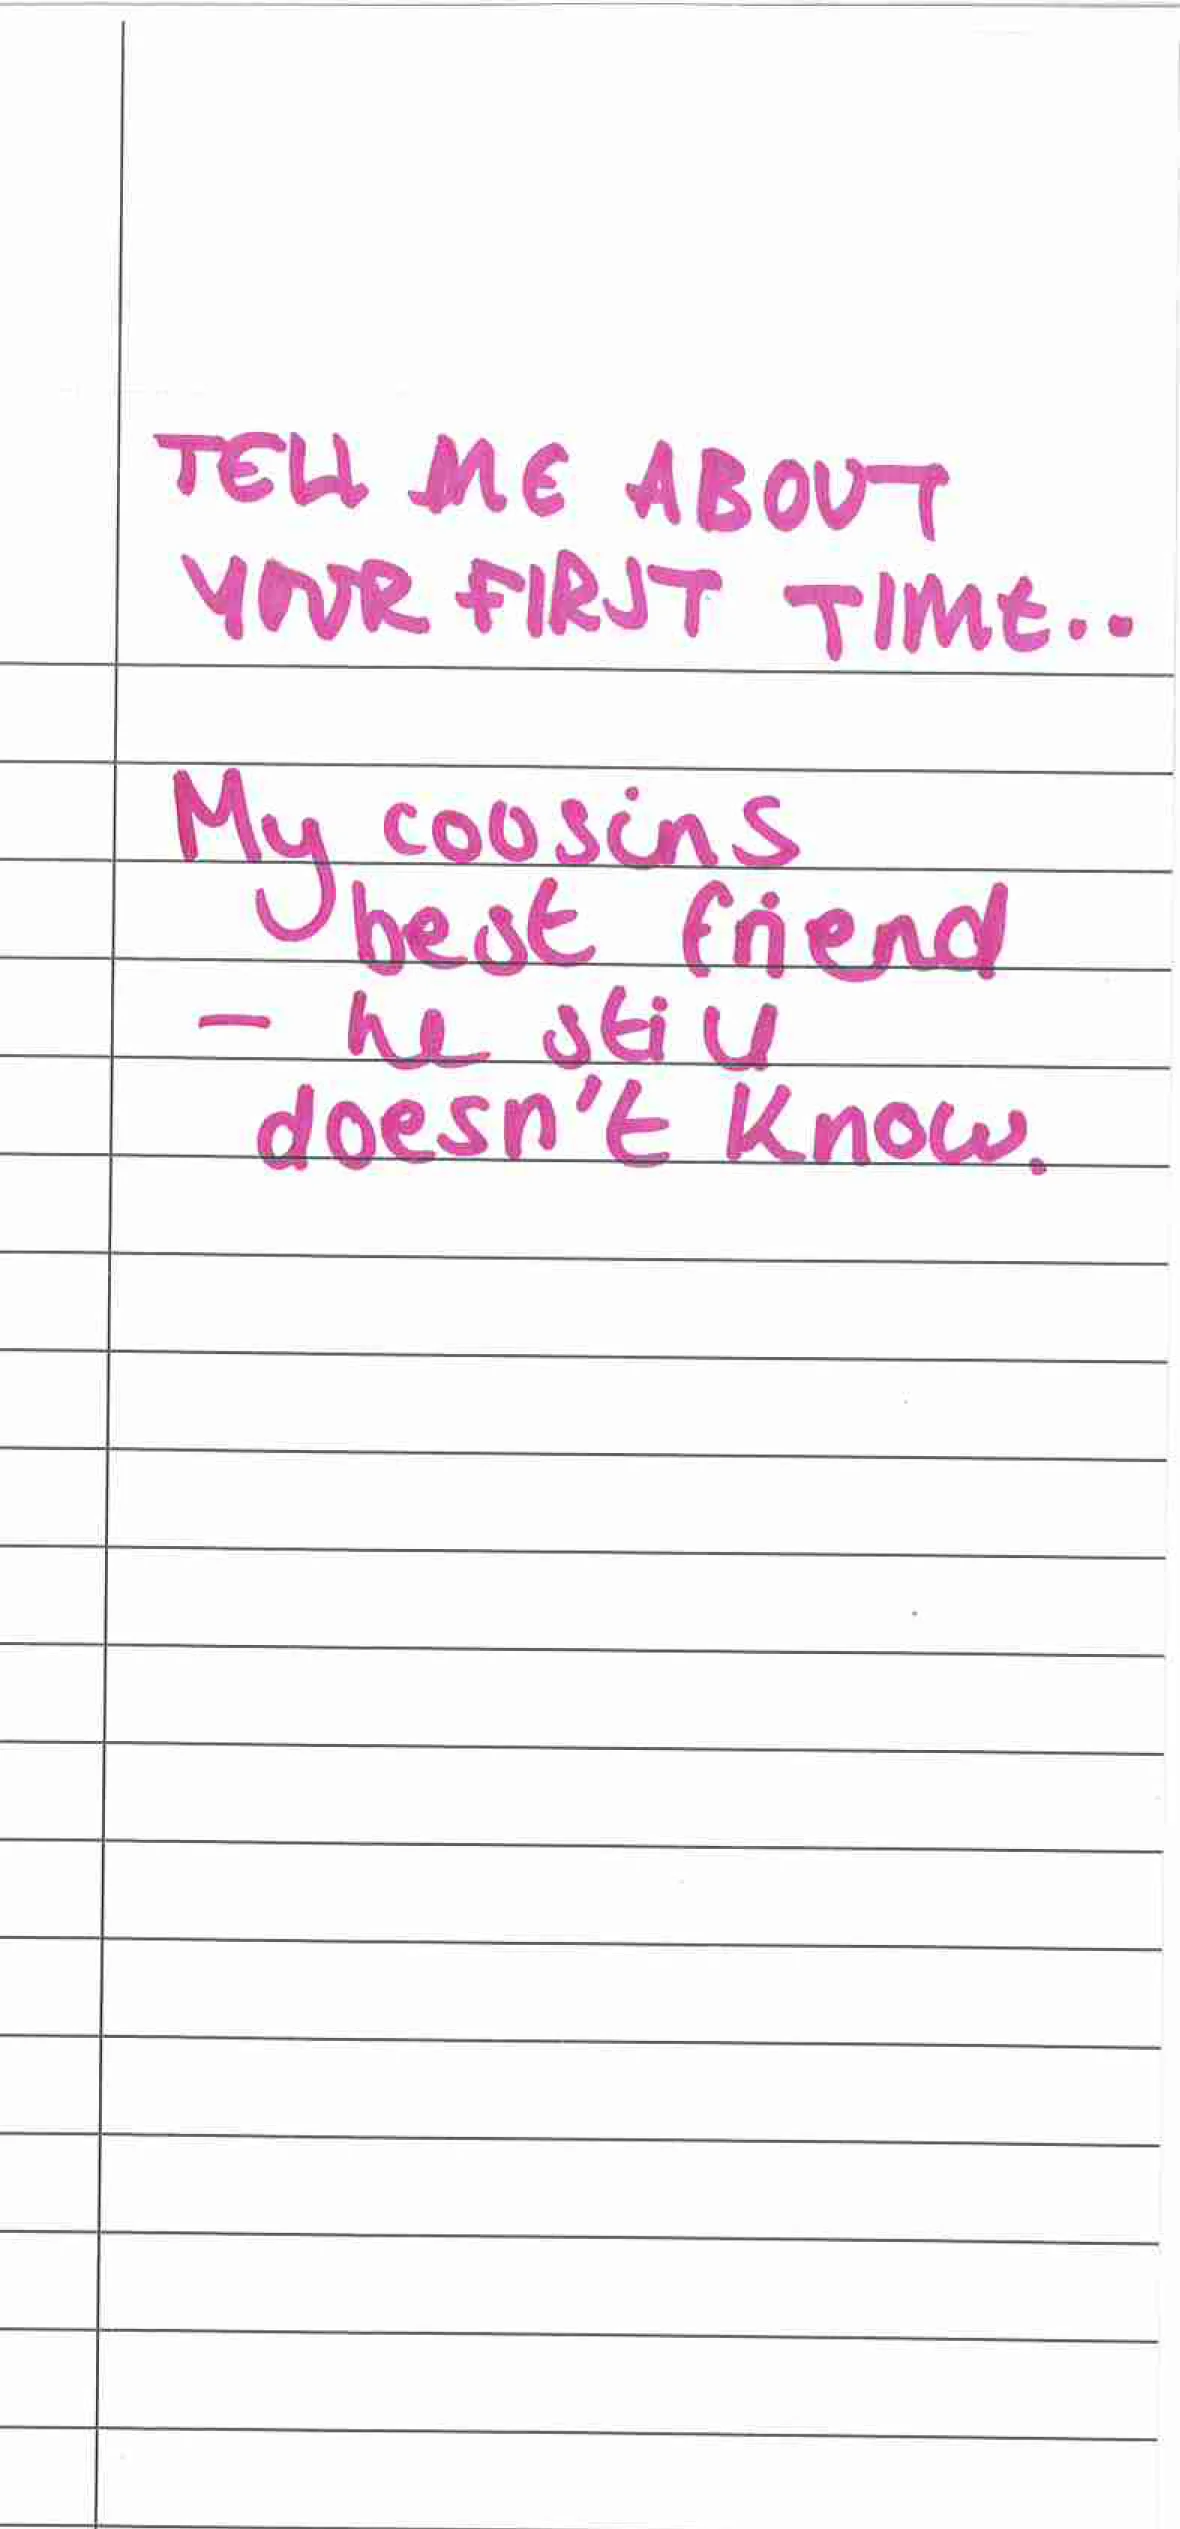 TELL ME ABOUT
YOUR FIRST TIME..
My cousins
best friend
- he still
doesn't know.